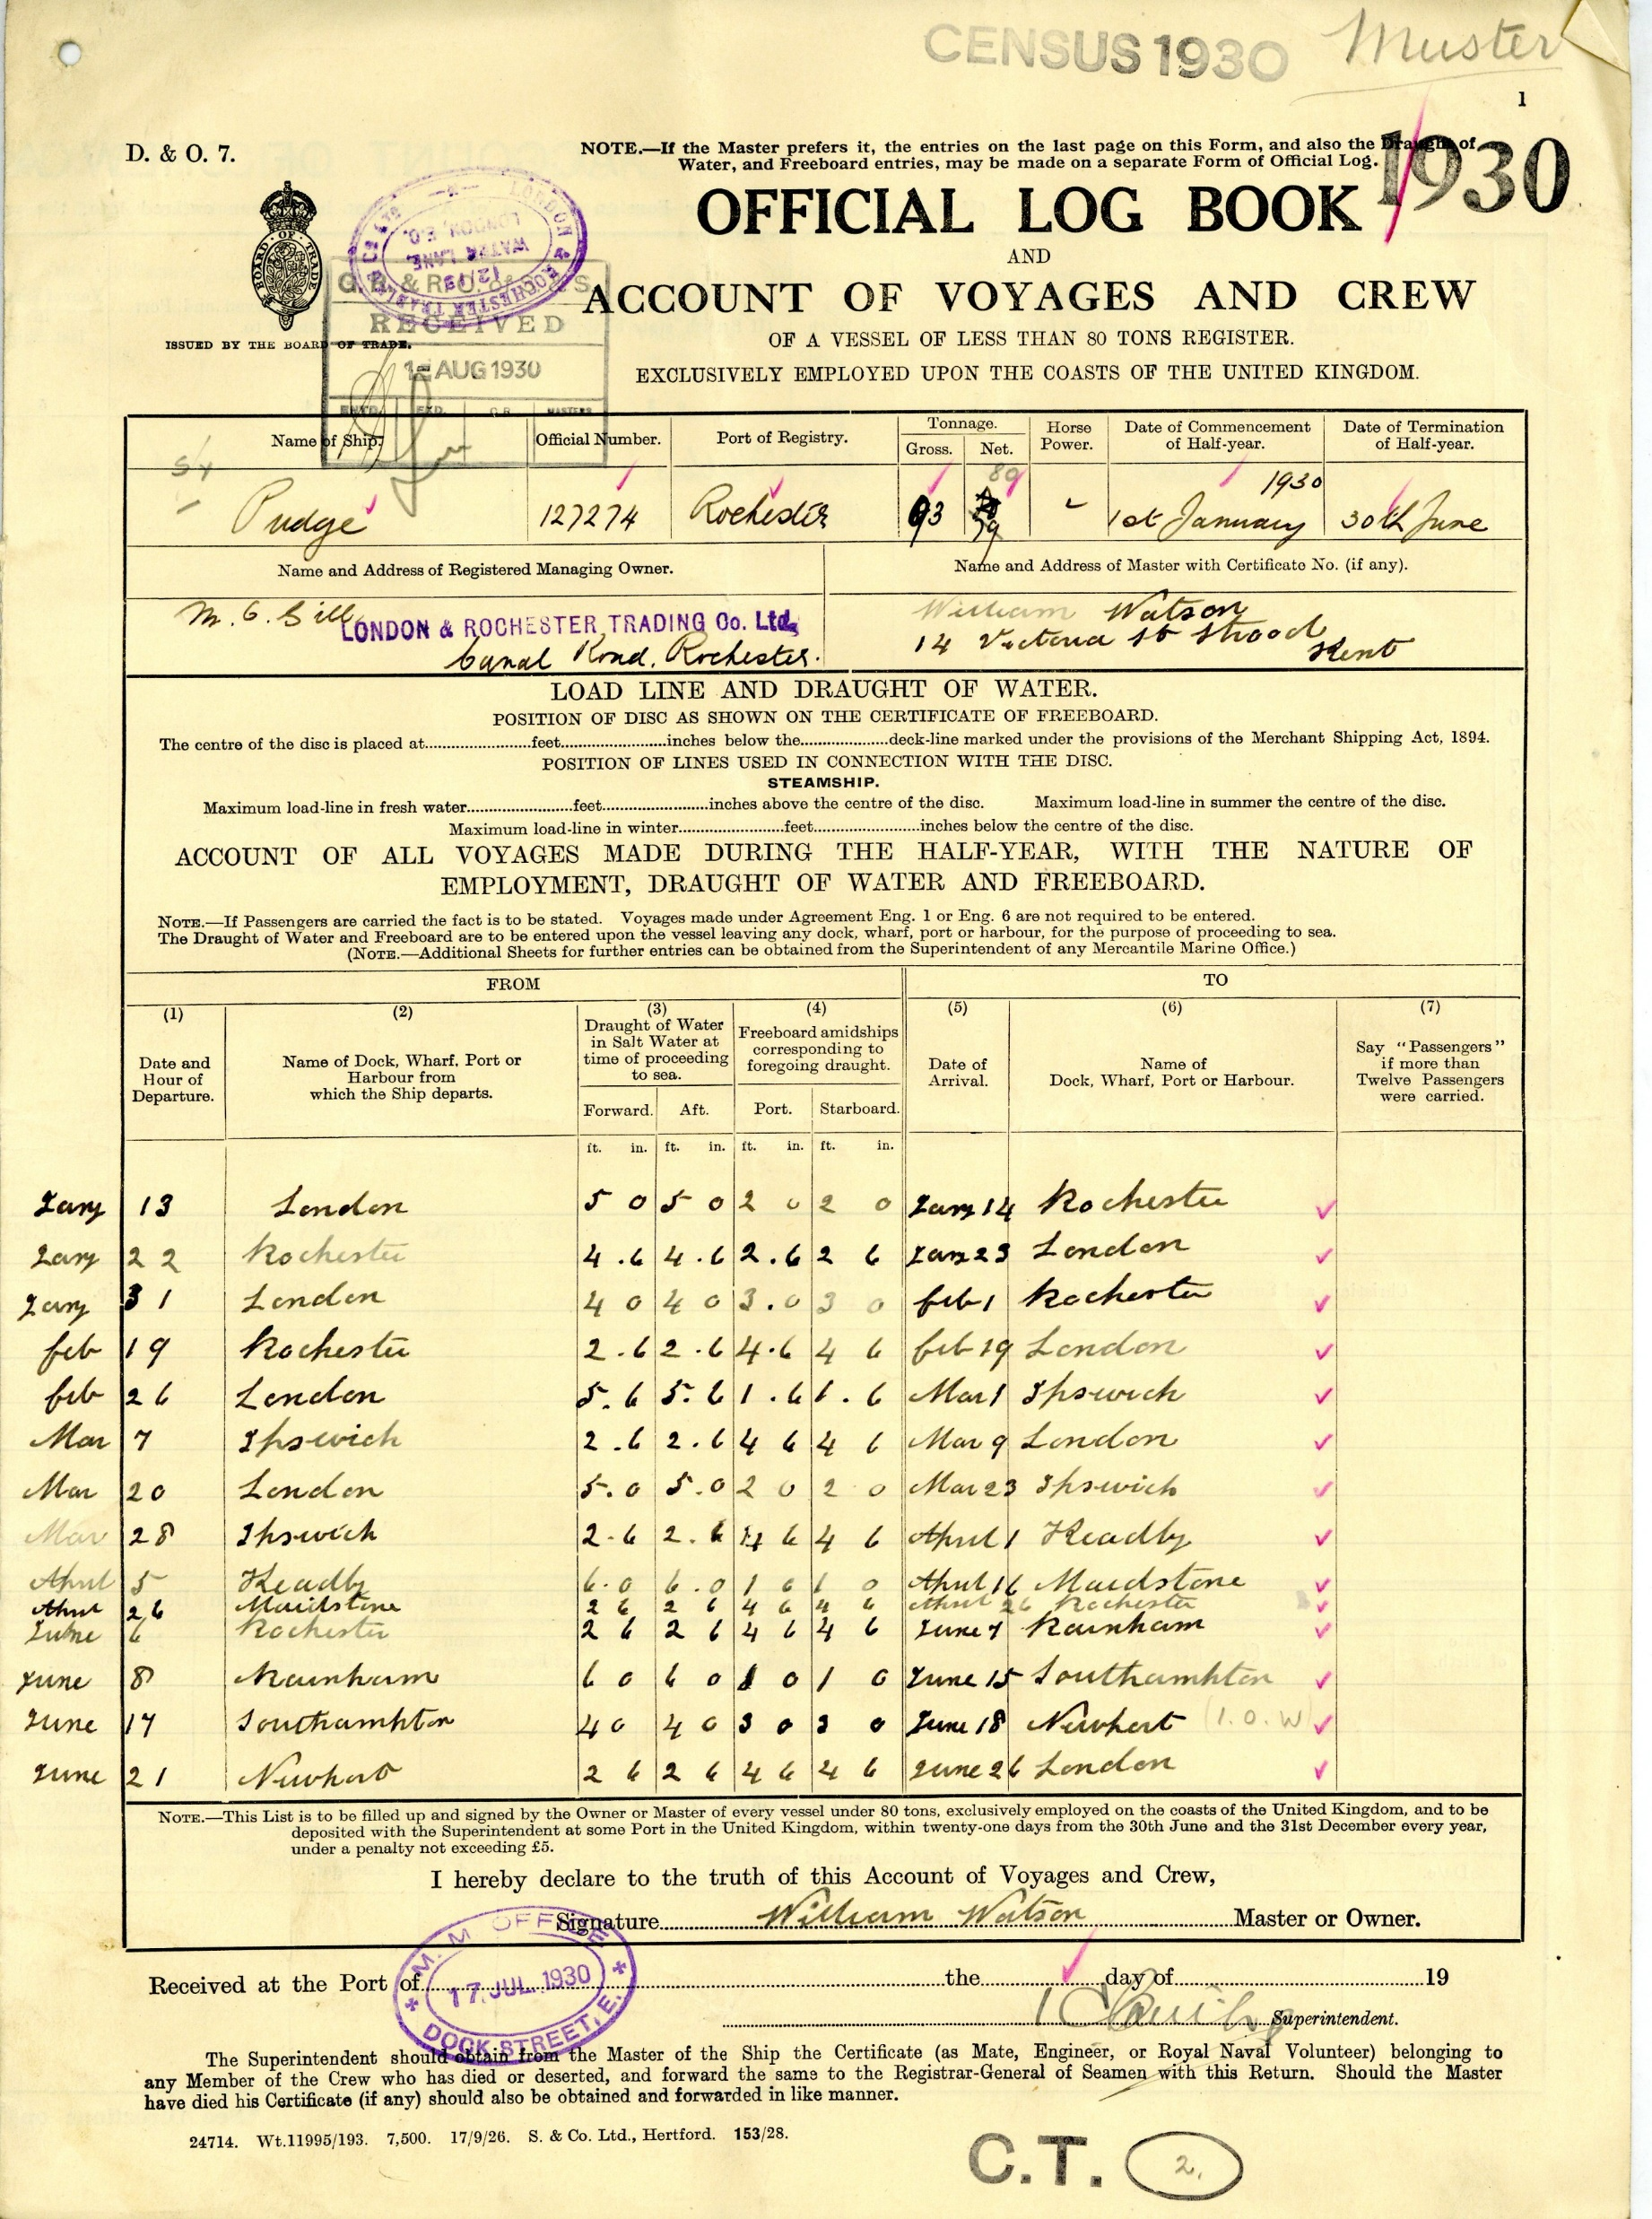 CENSUS 1930 Muster
1
D. & O. 7.
NOTE.—If the Master prefers it, the entries on the last page on this Form, and also the Draught of
Water, and Freeboard entries, may be made on a separate Form of Official Log.
1930
OFFICIAL LOG BOOK
AND
ACCOUNT OF VOYAGES AND CREW
OF A VESSEL OF LESS THAN 80 TONS REGISTER.
EXCLUSIVELY EMPLOYED UPON THE COASTS OF THE UNITED KINGDOM.
BOARD OF TRADE
ISSUED BY THE BOARD OF TRADE.
LONDON & ROCHESTER TRADING Co Ltd
12/13
WATER LANE,
LONDON, E.C.
RECEIVED
AUG 1930
Name of Ship. Official Number. Port of Registry. Tonnage. Gross. Net. Horse Power. Date of Commencement of Half-year. Date of Termination of Half-year.
80 1930
Pudge 127274 Rochester 93 79 - 1st January 30th June
Name and Address of Registered Managing Owner. Name and Address of Master with Certificate No. (if any).
M. G. Gill William Watson
LONDON & ROCHESTER TRADING Co. Ltd. 14 Victoria St Strood
Canal Road, Rochester. Kent
LOAD LINE AND DRAUGHT OF WATER.
POSITION OF DISC AS SHOWN ON THE CERTIFICATE OF FREEBOARD.
The centre of the disc is placed at........feet........inches below the........deck-line marked under the provisions of the Merchant Shipping Act, 1894.
POSITION OF LINES USED IN CONNECTION WITH THE DISC.
STEAMSHIP.
Maximum load-line in fresh water........feet........inches above the centre of the disc. Maximum load-line in summer the centre of the disc.
Maximum load-line in winter........feet........inches below the centre of the disc.
ACCOUNT OF ALL VOYAGES MADE DURING THE HALF-YEAR, WITH THE NATURE OF
EMPLOYMENT, DRAUGHT OF WATER AND FREEBOARD.
NOTE.—If Passengers are carried the fact is to be stated. Voyages made under Agreement Eng. 1 or Eng. 6 are not required to be entered.
The Draught of Water and Freeboard are to be entered upon the vessel leaving any dock, wharf, port or harbour, for the purpose of proceeding to sea.
(NOTE.—Additional Sheets for further entries can be obtained from the Superintendent of any Mercantile Marine Office.)
FROM TO
(1) (2) (3) (4) (5) (6) (7)
Date and Hour of Departure. Name of Dock, Wharf, Port or Harbour from which the Ship departs. Draught of Water in Salt Water at time of proceeding to sea. Freeboard amidships corresponding to foregoing draught. Date of Arrival. Name of Dock, Wharf, Port or Harbour. Say "Passengers" if more than Twelve Passengers were carried.
Forward. Aft. Port. Starboard.
ft. in. ft. in. ft. in. ft. in.
Jany 13 London 5 0 5 0 2 0 2 0 Jany 14 Rochester
Jany 22 Rochester 4.6 4.6 2.6 2 6 Jany 23 London
Jany 31 London 4 0 4 0 3.0 3 0 feb 1 Rochester
feb 19 Rochester 2.6 2.6 4.6 4 6 feb 19 London
feb 26 London 5.6 5.6 1.6 1.6 Mar 1 Ipswich
Mar 7 Ipswich 2.6 2.6 4 6 4 6 Mar 9 London
Mar 20 London 5.0 5.0 2 0 2 0 Mar 23 Ipswich
Mar 28 Ipswich 2.6 2.6 4 6 4 6 April 1 Keadby
April 5 Keadby 6.0 6.0 1 0 1 0 April 16 Maidstone
April 26 Maidstone 2 6 2 6 4 6 4 6 April 26 Rochester
June 6 Rochester 2 6 2 6 4 6 4 6 June 7 Rainham
June 8 Rainham 6 0 6 0 1 0 1 0 June 15 Southampton
June 17 Southampton 4 0 4 0 3 0 3 0 June 18 Newport (I.O.W)
June 21 Newport 2 6 2 6 4 6 4 6 June 26 London
NOTE.—This List is to be filled up and signed by the Owner or Master of every vessel under 80 tons, exclusively employed on the coasts of the United Kingdom, and to be
deposited with the Superintendent at some Port in the United Kingdom, within twenty-one days from the 30th June and the 31st December every year,
under a penalty not exceeding £5.
I hereby declare to the truth of this Account of Voyages and Crew,
Signature........William Watson........Master or Owner.
M. M OFFICE
17 JUL 1930
DOCK STREET, E.
Received at the Port of........the........day of........19
Superintendent.
The Superintendent should obtain from the Master of the Ship the Certificate (as Mate, Engineer, or Royal Naval Volunteer) belonging to
any Member of the Crew who has died or deserted, and forward the same to the Registrar-General of Seamen with this Return. Should the Master
have died his Certificate (if any) should also be obtained and forwarded in like manner.
24714. Wt.11995/193. 7,500. 17/9/26. S. & Co. Ltd., Hertford. 153/28.
C.T. 2.